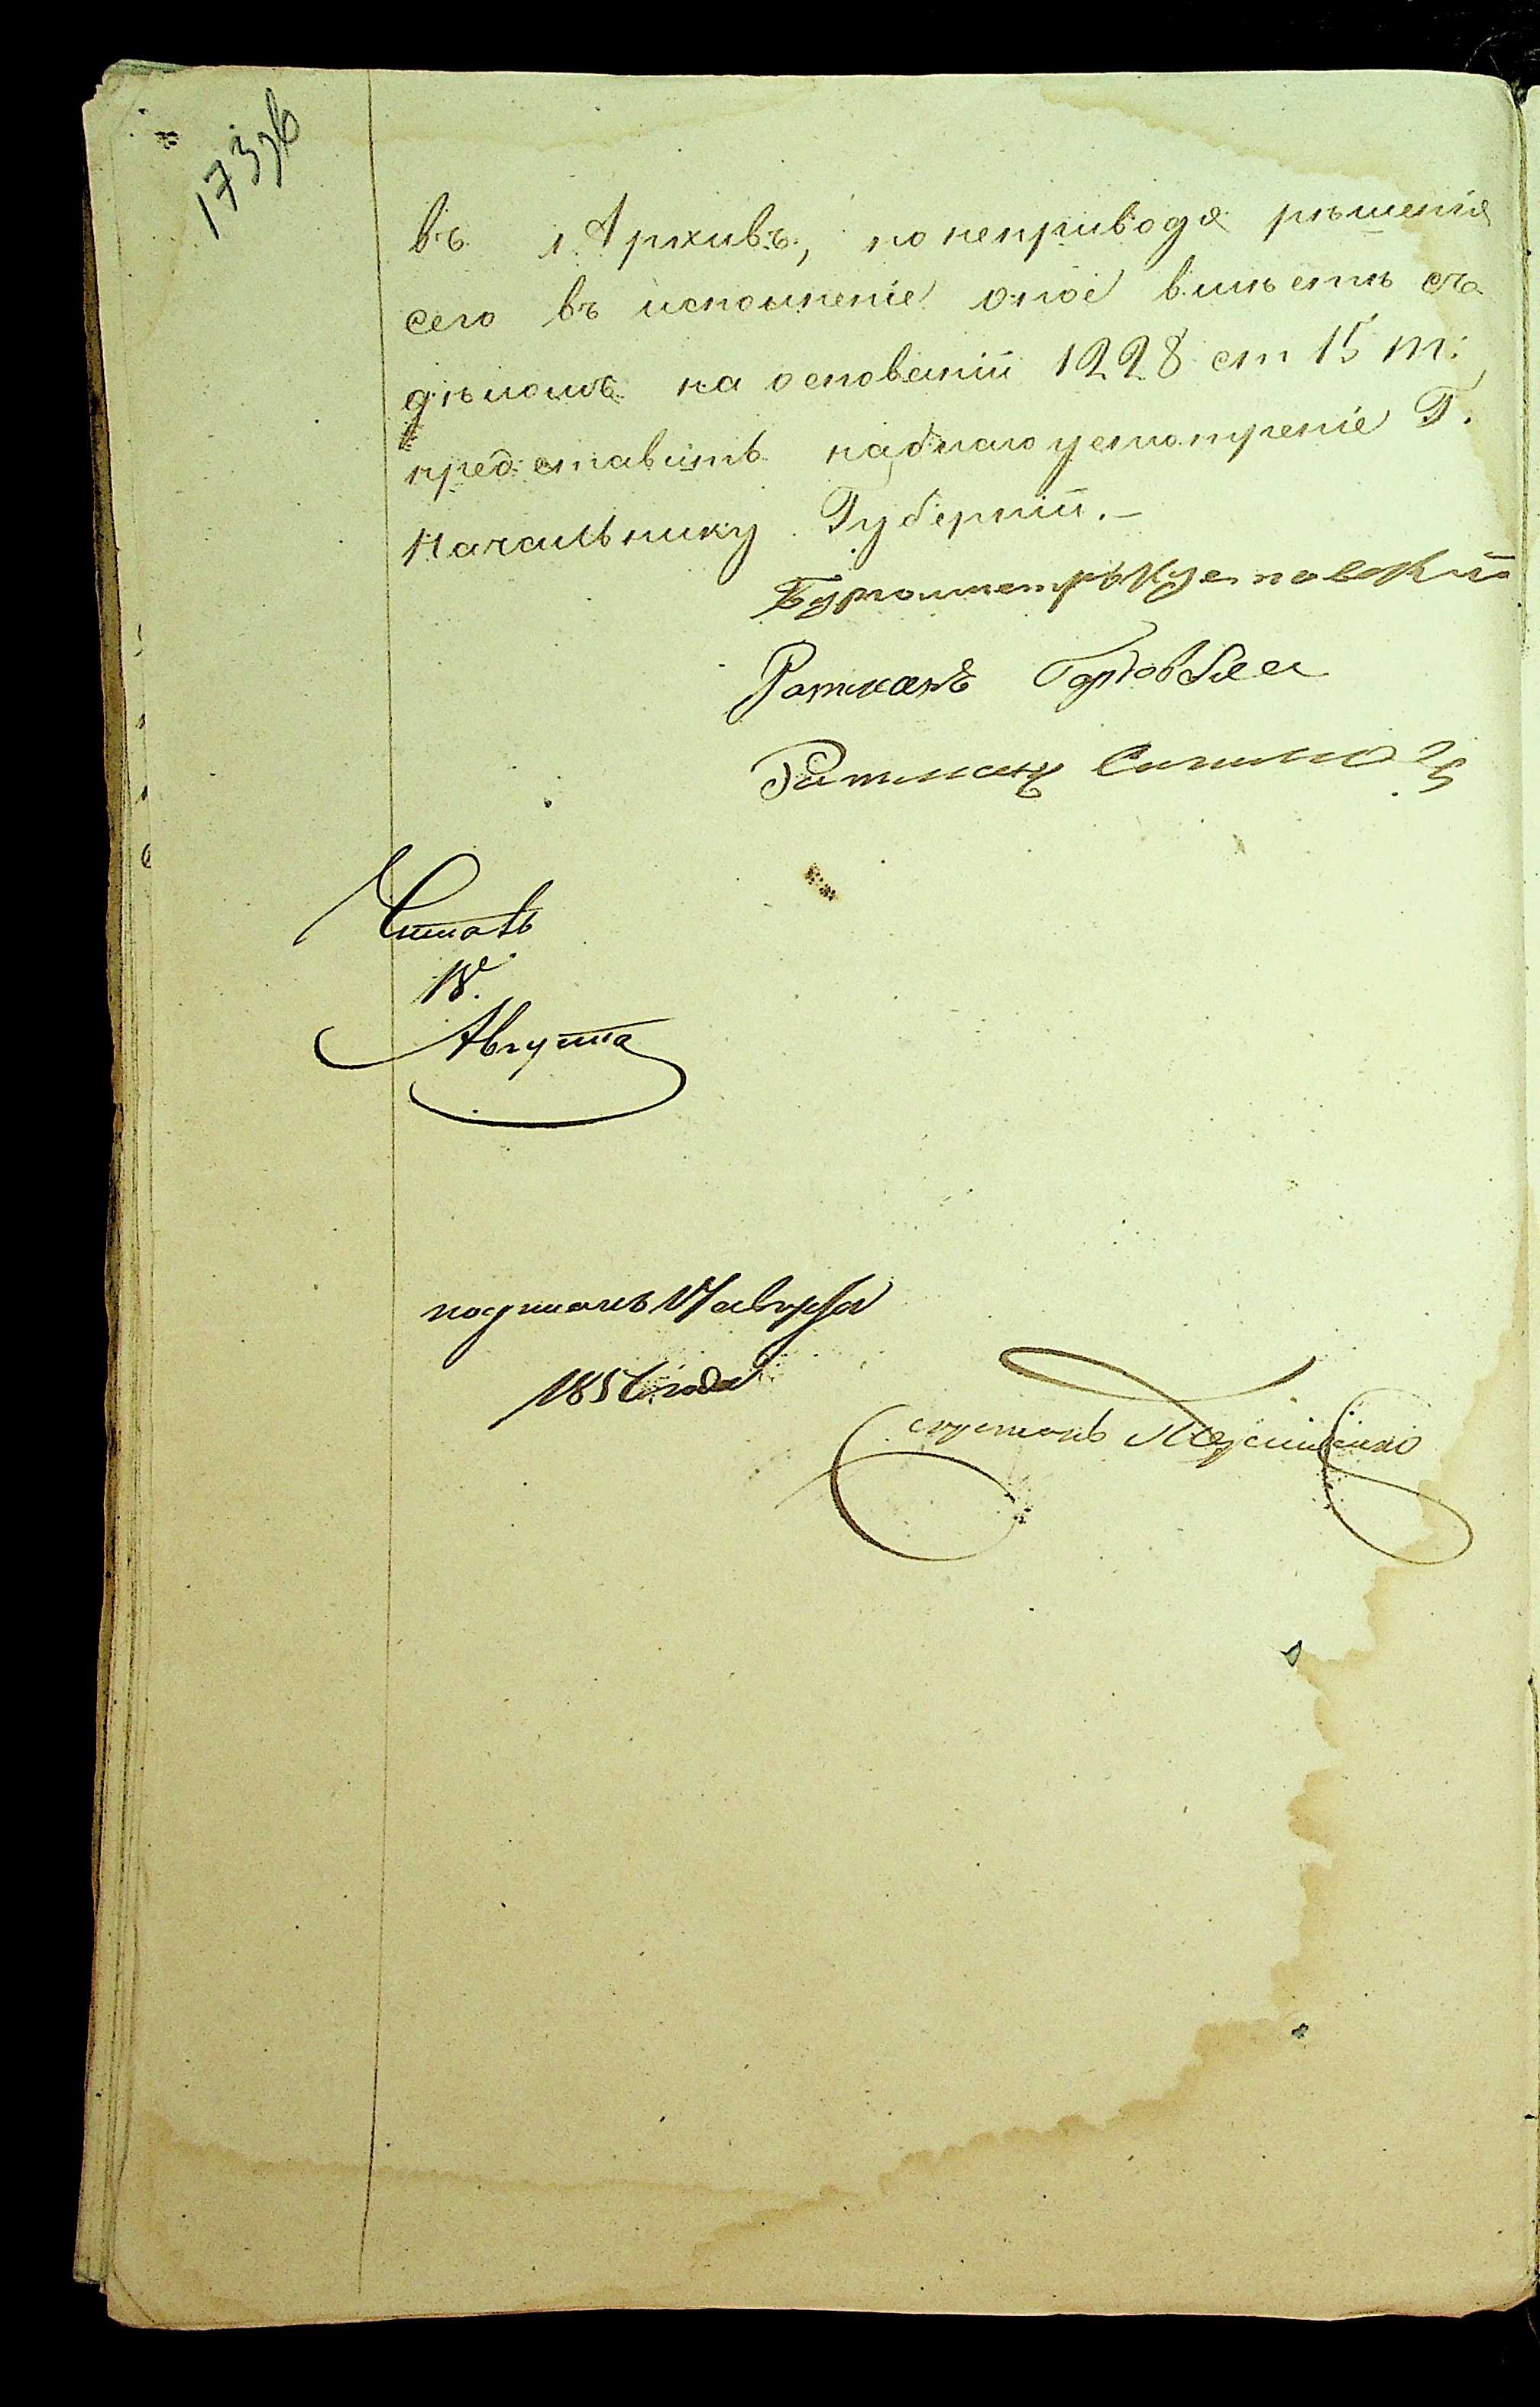 173 об
въ Архивъ, но неприводя рѣшенія
сего въ исполненіе оное вмѣстѣ съ
дѣломъ на основаніи 1228 ст 15 т:
представить на благоусмотреніе Г.
Начальнику Губерніи. –
Бургомистръ
Ратманъ
Ратманъ
Читалъ
18
Августа
подписалъ 17 августа
1856 года
слушалъ